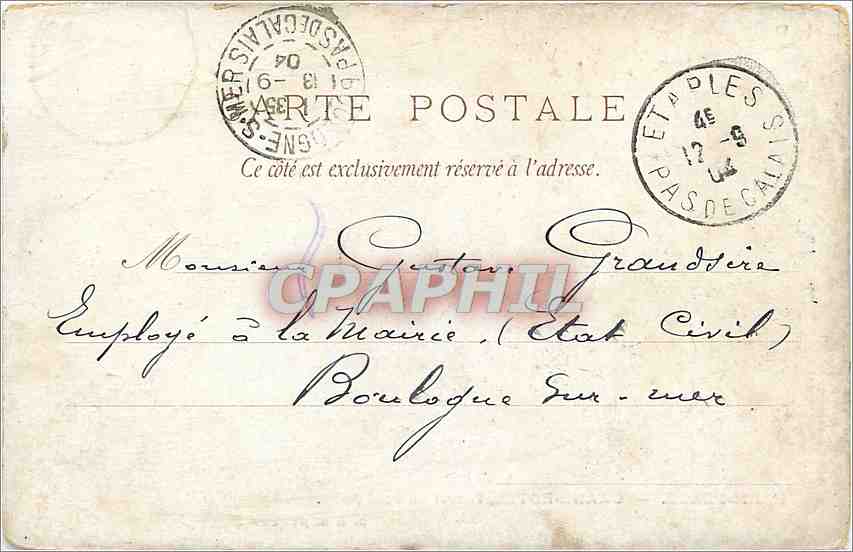 BOULOGNE-S-MER PAS DE CALAIS
1 35
13 -9
04
CARTE POSTALE
Ce côté est exclusivement réservé à l'adresse.
ETAPLES
4E
12 -9
04
PAS DE CALAIS
Monsieur Gustave Grandsire
CPAPHIL
Employé à la Mairie, (Etat Civil)
Boulogne Sur-mer